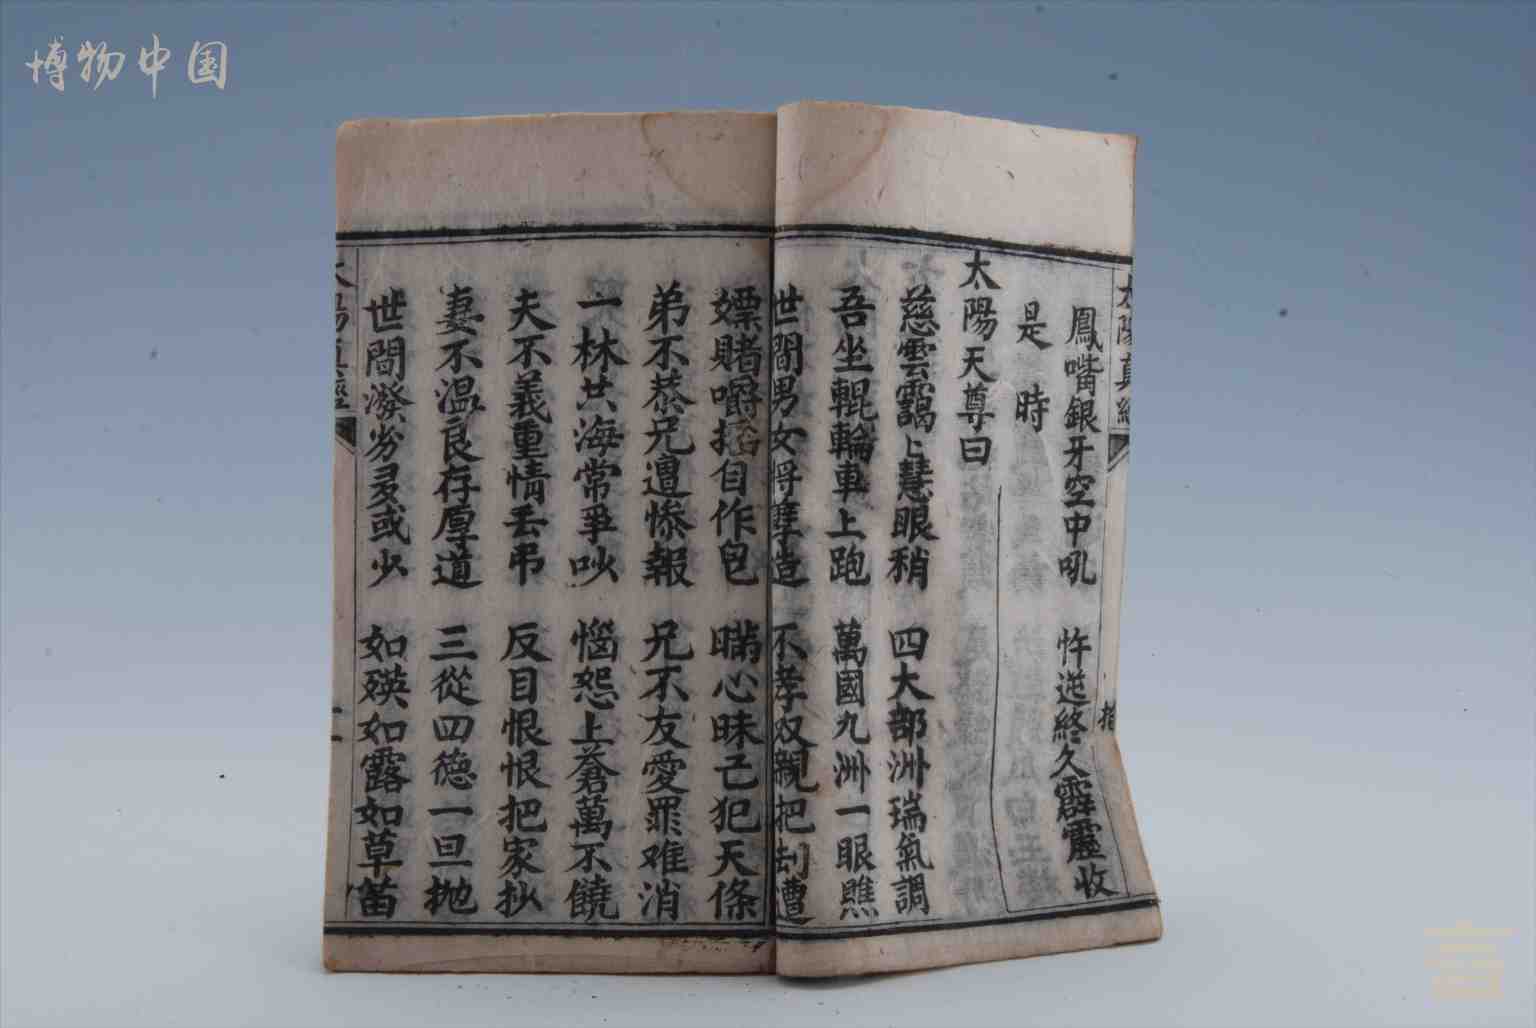 博物中国
太陽真經
鳳嘴銀牙空中吼 忤逆終久霹靂收
是時
太陽天尊曰
慈雲靄上慧眼稍 四大部洲瑞氣調
吾坐輥輪車上跑 萬國九洲一眼瞧
世間男女將孽造 不孝双親把刮遭
嫖賭嚼搖自作包 瞞心昧己犯天條
弟不恭兄遭慘報 兄不友愛罪难消
一林共海常爭吵 惱怨上蒼萬不饒
夫不義重情丢吊 反目恨恨把家抄
妻不温良存厚道 三從四德一旦抛
世間潑労多或少 如殀如露如草苗
太陽真經